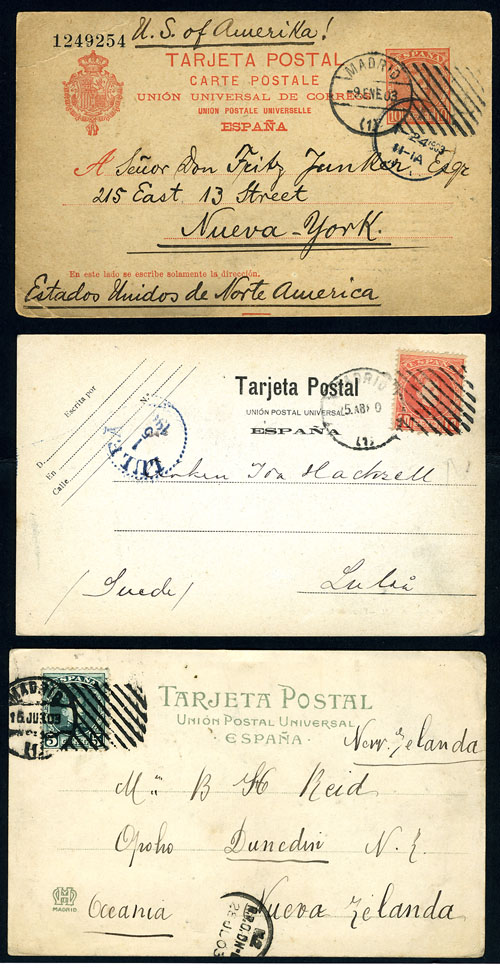 1249254
U.S. of Amerika!
TARJETA POSTAL
CARTE POSTALE
UNIÓN UNIVERSAL DE CORREOS
UNION POSTALE UNIVERSELLE
ESPAÑA
ESPAÑA
MADRID
9 ENE 03
(1)
24
11-1A
A Señor Don Fritz Junker, Esqr
215 East 13 Street
Nueva-York.
En este lado se escribe solamente la dirección.
Estados Unidos de Norte America
Escrita por
D.
En
Calle
N.º
LULEÅ
Tarjeta Postal
UNIÓN POSTAL UNIVERSAL
ESPAÑA
MADRID
(1)
ESPAÑA
Ida Hackzell
(Suede)
Luleå
ESPAÑA
MADRID
15 JU 03
(1)
TARJETA POSTAL
UNIÓN POSTAL UNIVERSAL
· ESPAÑA ·
New Zelanda
B H Reid
Opoho Dunedin N.Z.
MADRID
Oceania Nueva Zelanda
28 JL 03